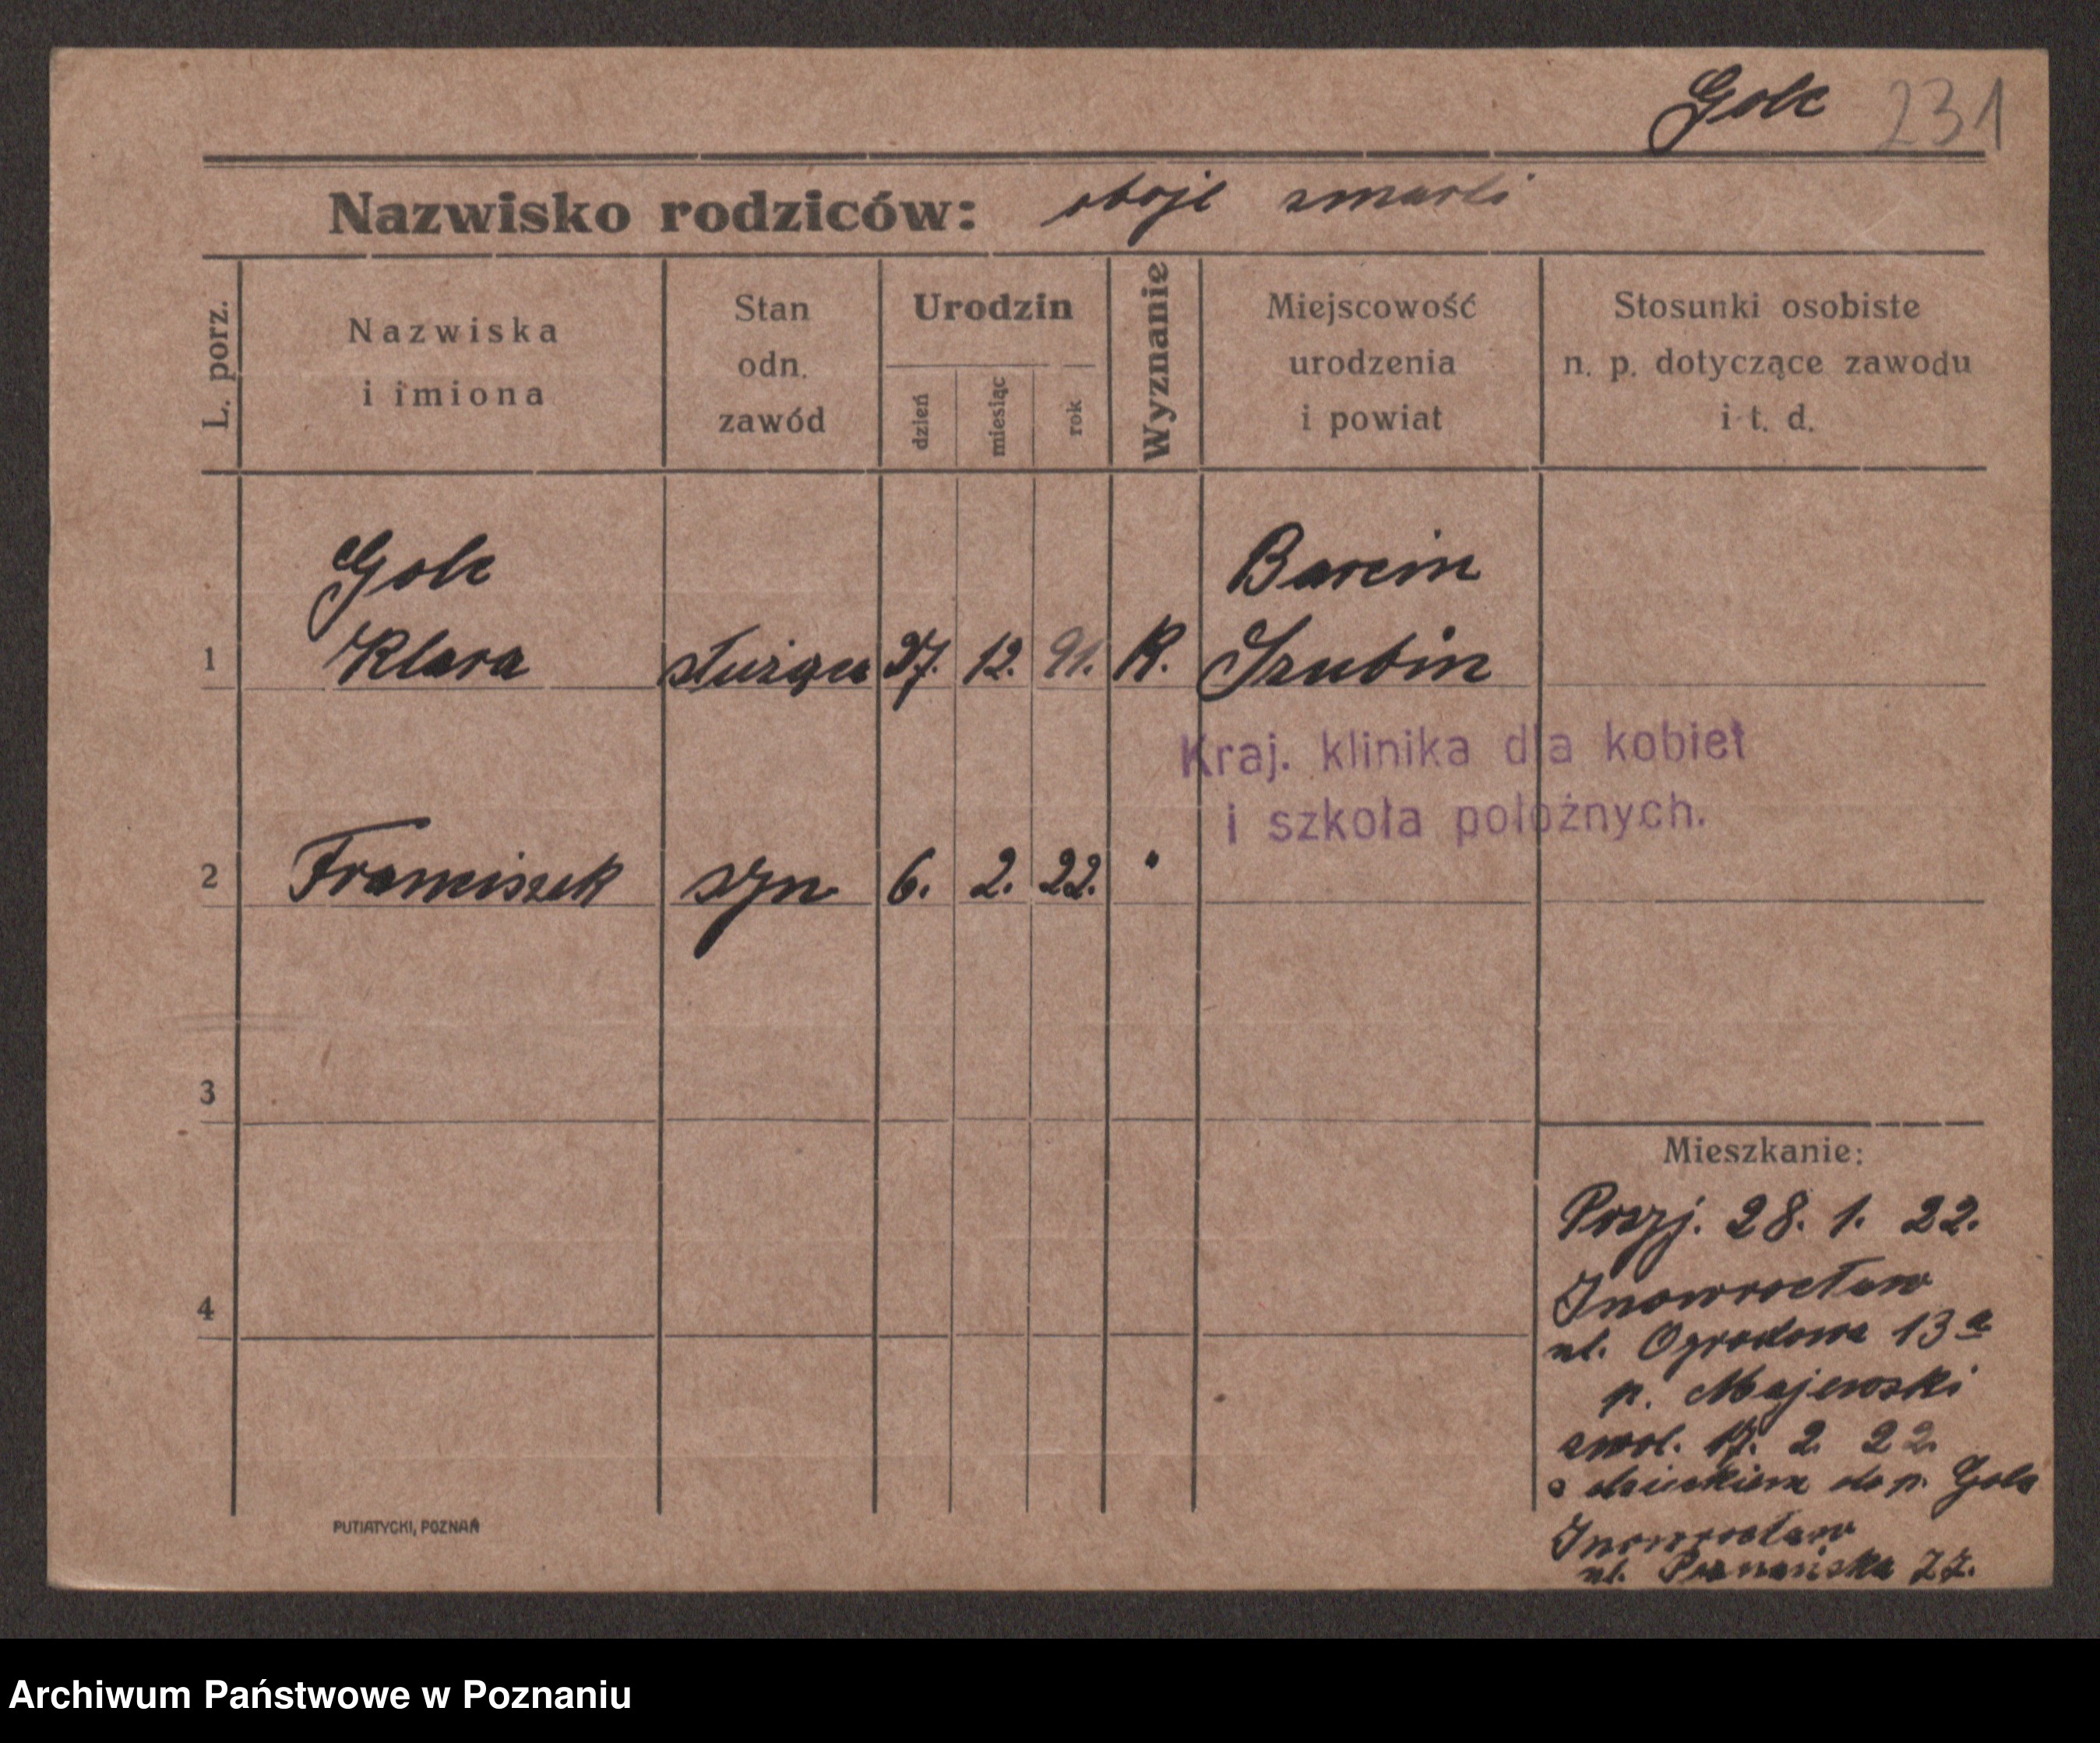 Golc 231
Nazwisko rodziców: oboje zmarli
L. porz.
Nazwiska
i imiona
Stan
odn.
zawód
Urodzin
dzień
miesiąc
rok
Wyznanie
Miejscowość
urodzenia
i powiat
Stosunki osobiste
n. p. dotyczące zawodu
i t. d.
Golc Barcin
1 Klara służąca 27. 12. 91. K. Szubin
Kraj. klinika dla kobiet
i szkoła położnych.
2 Franciszek syn 6. 2. 22. "
3
Mieszkanie:
Przyj. 28. 1. 22.
4
Inowrocław
ul. Ogrodowa 13 a
p. Majewski
zwol. 17. 2. 22.
z dzieckiem do p. Golc
Inowrocław
ul. Poznańska
PUTIATYCKI, POZNAŃ
Archiwum Państwowe w Poznaniu